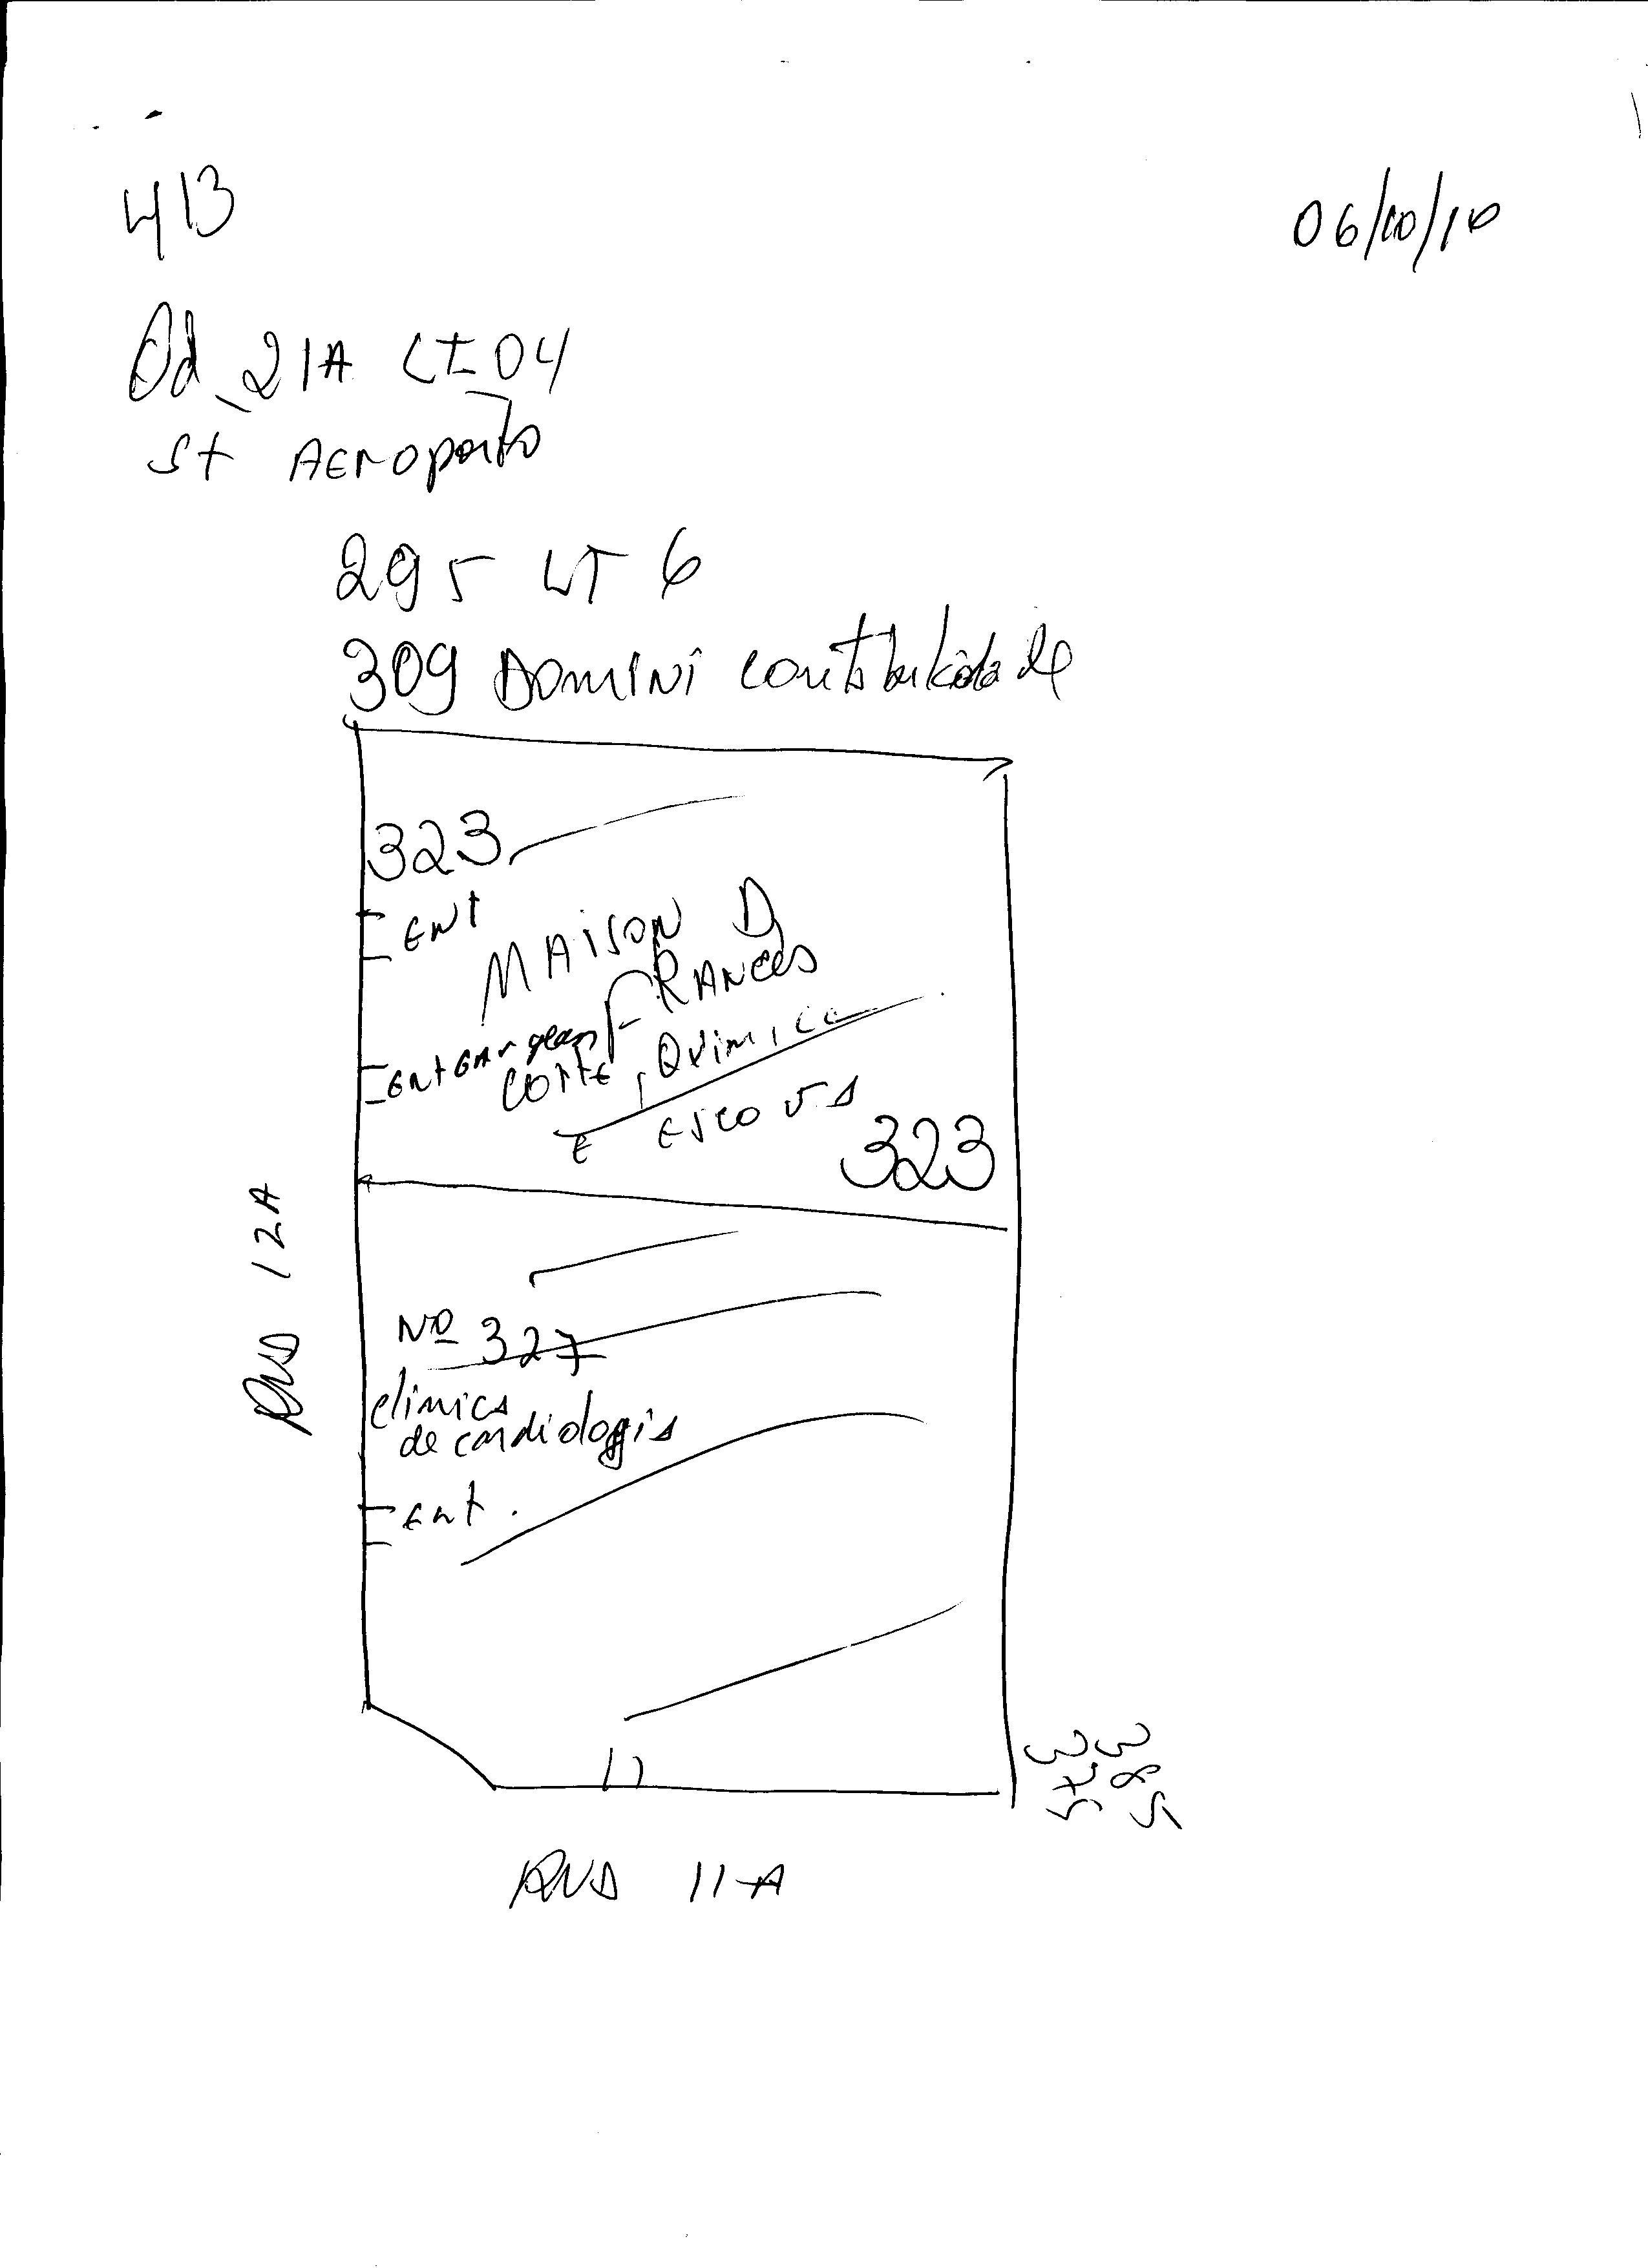 413
06/10/10
Qd 21A LT 04
St AEROPORTO
295 LT 6
309 DOMINI contabilidade
323
ENT
MAISON D
FRANCES
ENT GAR
CORTE, QUIMICA
E ESCOVA
323
RUA 12A
Nº 327
clinica
de cardiologia
Ent.
385
RUA 11-A